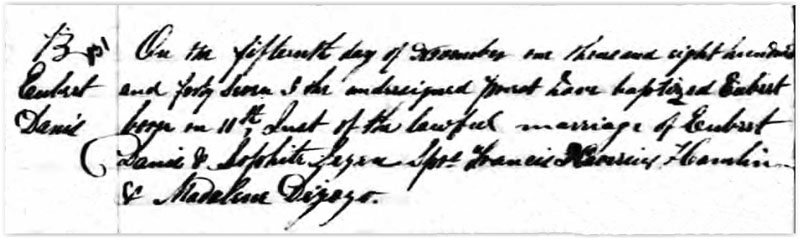 B 151 On the fifteenth day of November one thousand eight hundred
Eubert and forty seven I the undersigned priest have baptized Eubert
Danis born on 11th Inst of the lawful marriage of Eubert
Danis & Sophite Spt. Francis Xaverius Hamlin
& Madalene